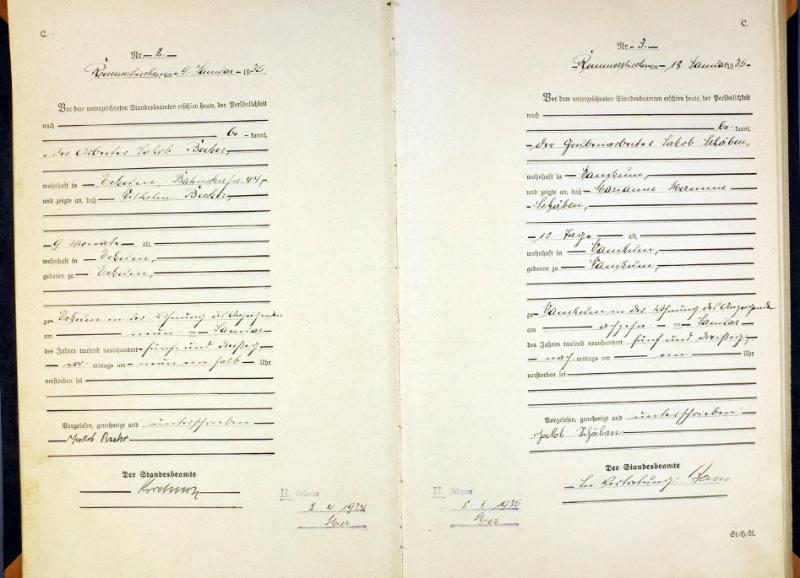 C.
Nr. 2.
Rommerskirchen 9 Januar 1935.
Vor dem unterzeichneten Standesbeamten erschien heute, der Persönlichkeit
nach
be kannt,
der Arbeiter Jakob
wohnhaft in Eckum, Bahnstrasse 44,
und zeigte an, daß Wilhelm
9 Monate alt,
wohnhaft in Eckum,
geboren zu Eckum,
zu Eckum in der Wohnung des Anzeigenden
am neun ten Januar
des Jahres tausend neunhundert fünf und dreißig
vor mittags um neun ein halb Uhr
verstorben sei
Vorgelesen, genehmigt und unterschrieben
Jakob
Der Standesbeamte
II. Geboren
2 4 1934
C.
Nr. 3.
Rommerskirchen 18 Januar 1935
Vor dem unterzeichneten Standesbeamten erschien heute, der Persönlichkeit
nach
be kannt,
der Grubenarbeiter Jakob Schäben,
wohnhaft in Vanikum,
und zeigte an, daß Marianne
Schäben,
10 Tage alt,
wohnhaft in Vanikum,
geboren zu Vanikum,
zu Vanikum in der Wohnung des Anzeigenden
am achzehn ten Januar
des Jahres tausend neunhundert fünf und dreißig
nach mittags um ein Uhr
verstorben sei
Vorgelesen, genehmigt und unterschrieben
Jakob Schäben
Der Standesbeamte
In Vertretung:
II. Geboren
1935
St.-H.-A.